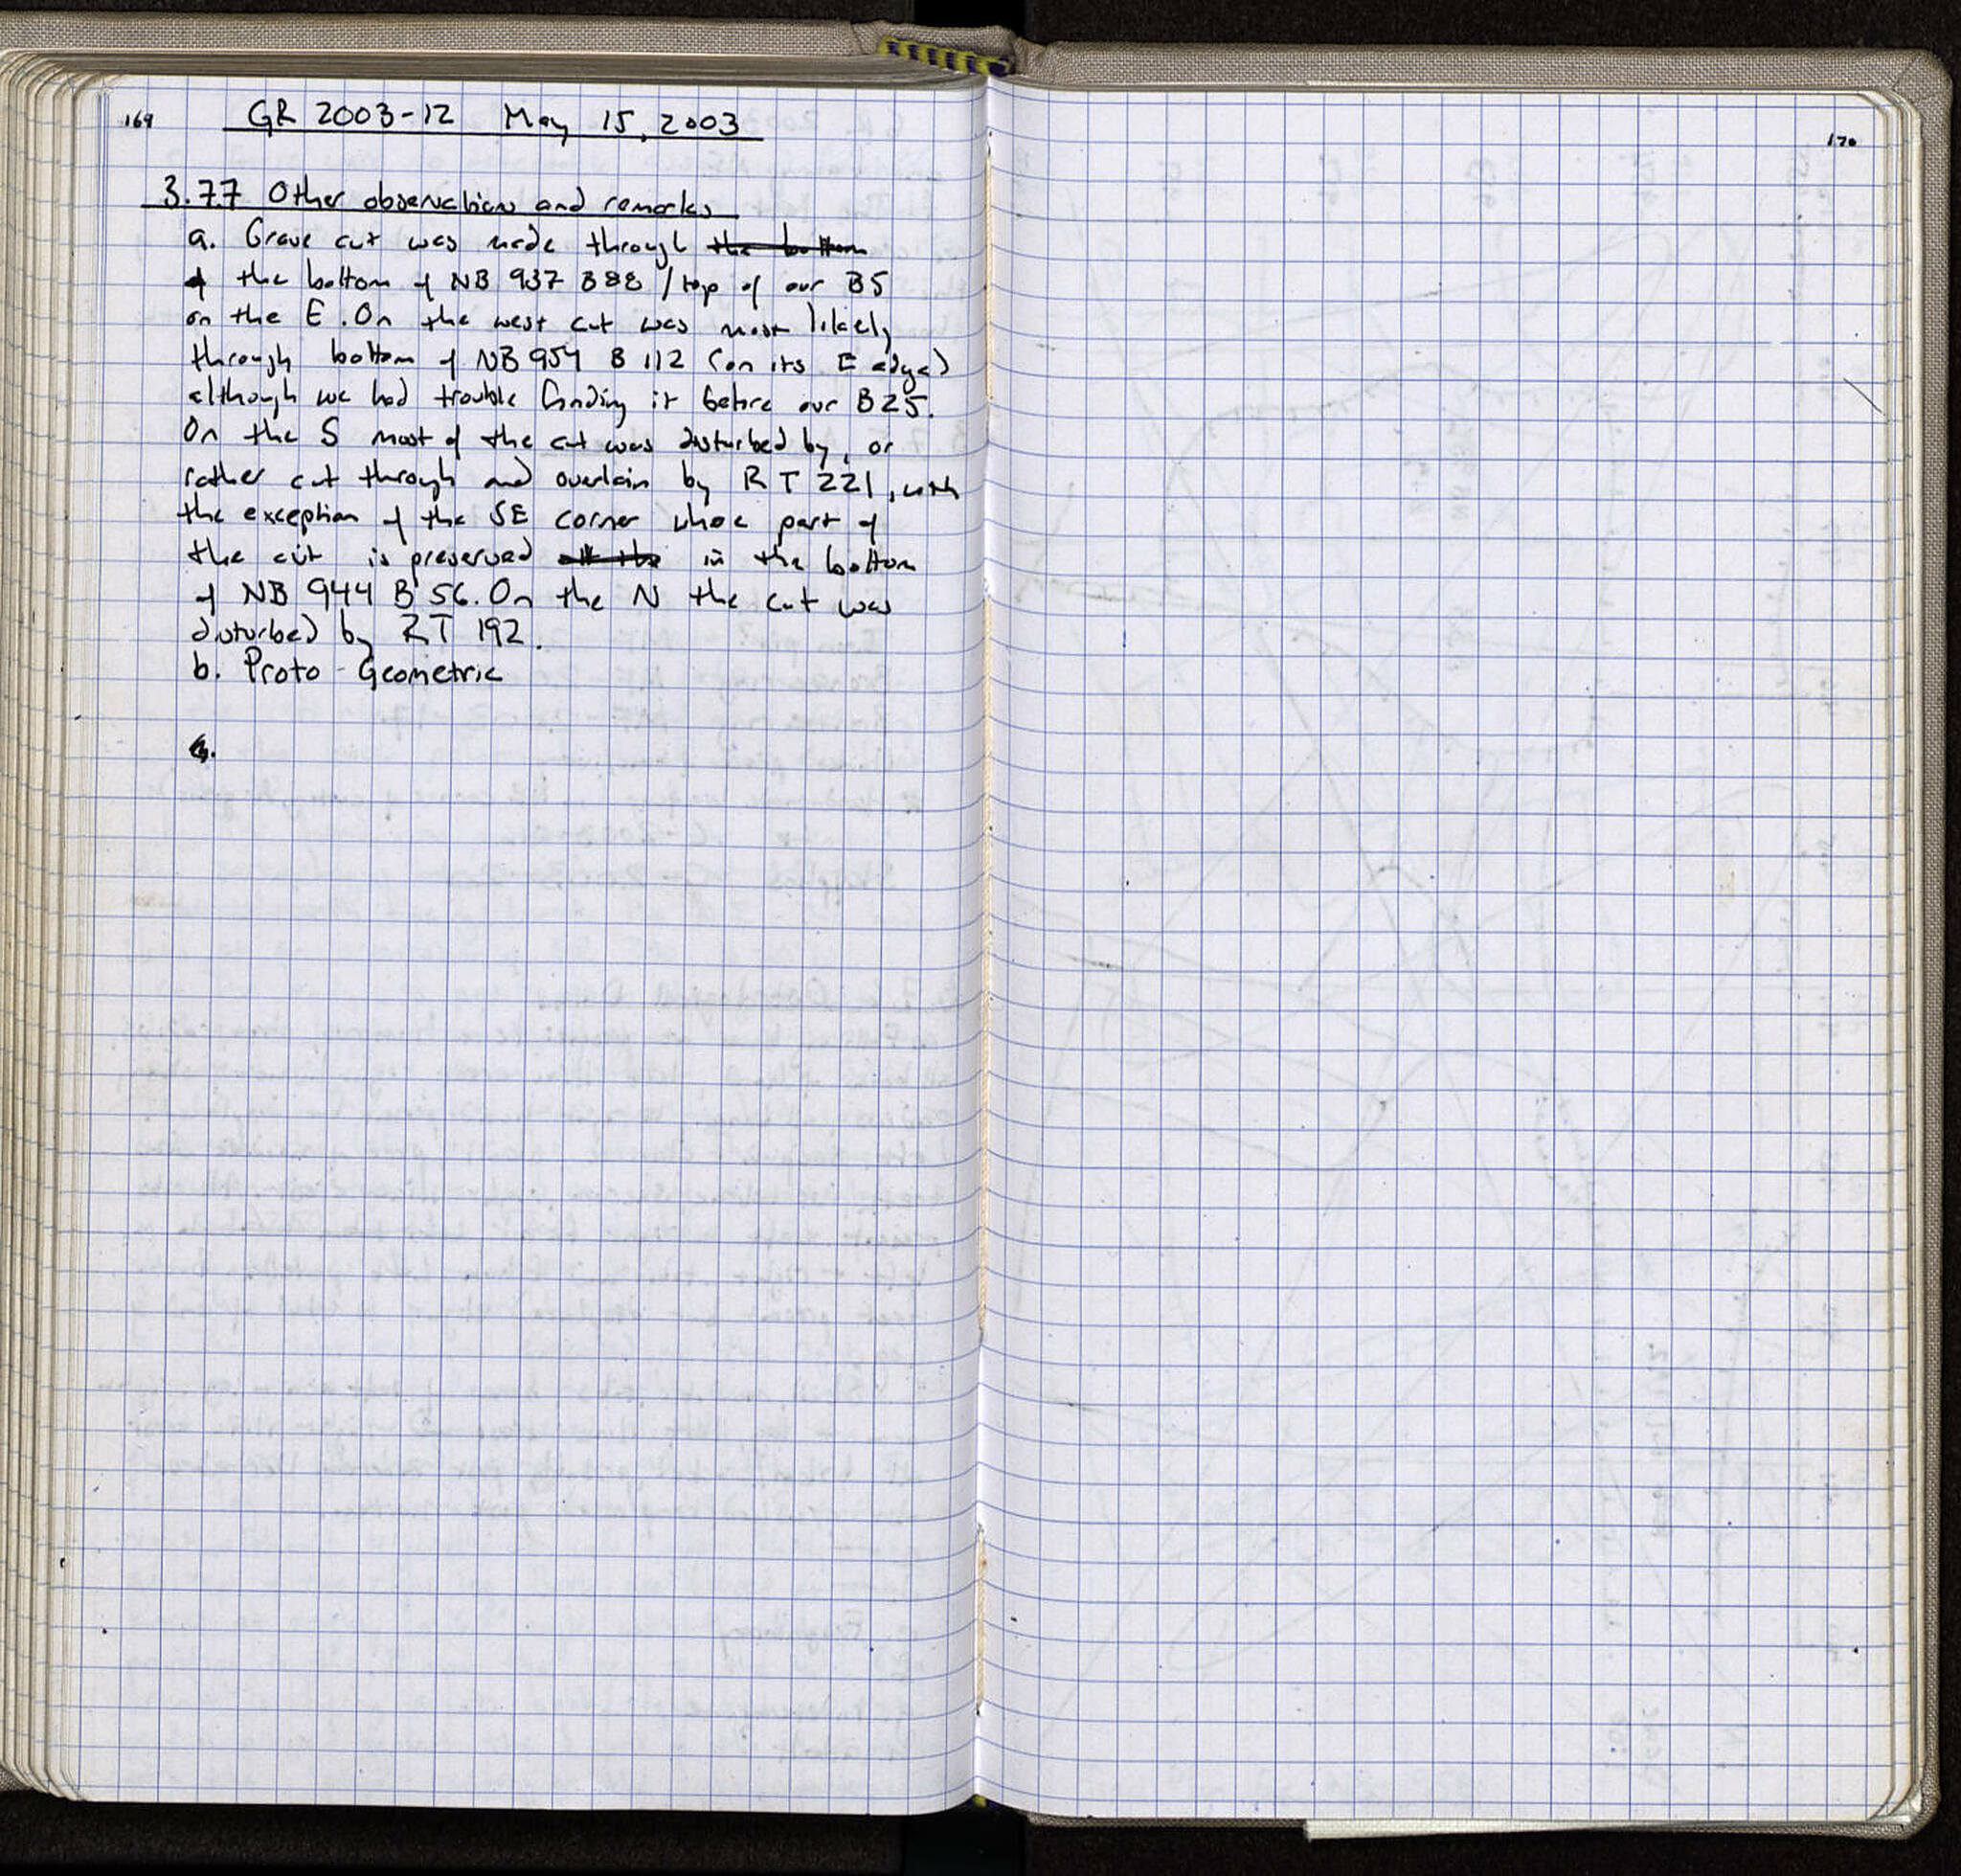 169
GR 2003-12 May 15, 2003
3.7.7 Other observations and remarks
a. Grave cut was made through the bottom
of the bottom of NB 937 B88 / top of our B5
on the E. On the west cut was most likely
through bottom of NB 954 B 112 (on its E edge)
although we had trouble finding it before our B25.
On the S most of the cut was disturbed by, or
rather cut through and overlain by RT 221, with
the exception of the SE corner where part of
the cut is preserved in the bottom
of NB 944 B 56. On the N the cut was
disturbed by RT 192.
b. Proto-Geometric
170